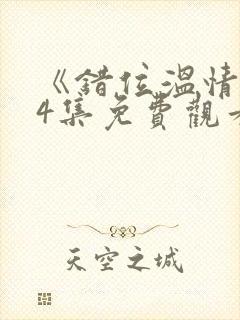 《錯位溫情
4集免費觀
天空之城